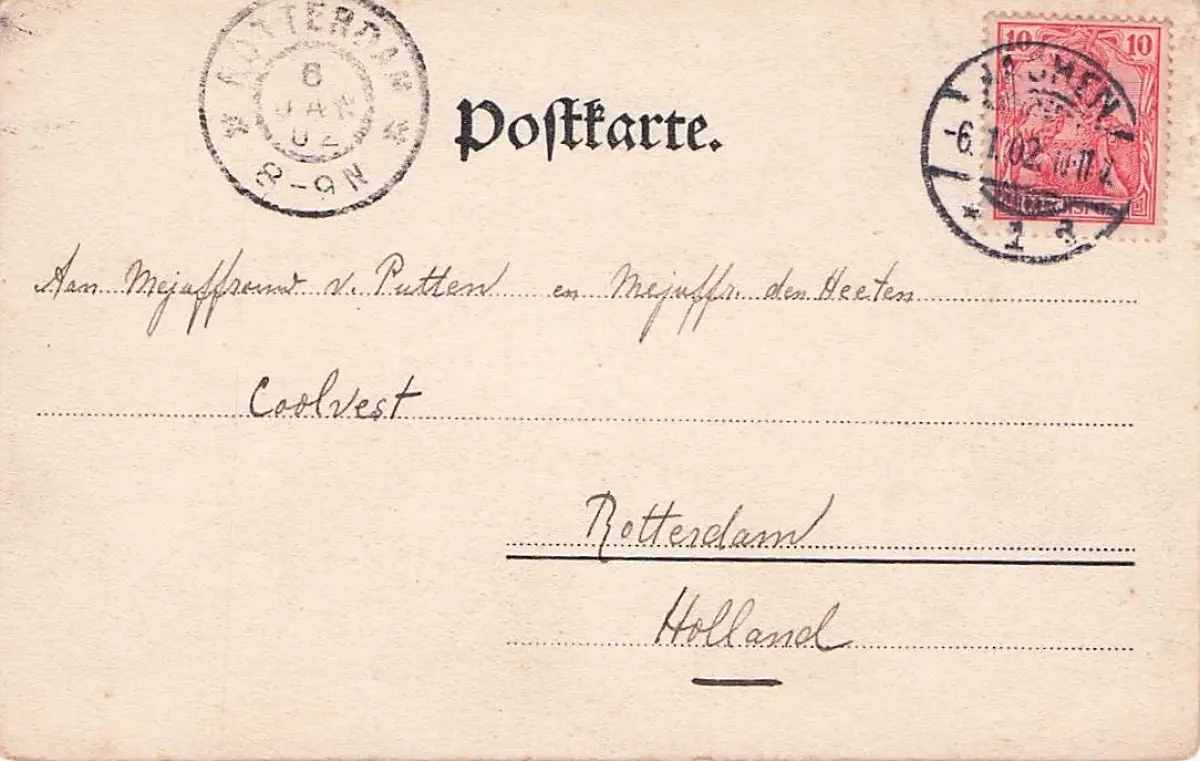 ROTTERDAM
6
JAN
02
8-9N
Postkarte.
10 10
AACHEN
-6.1.02. 10-11
* 1
Aan Mejuffrouw v. Putten en Mejuffr. den Heeten
Coolvest
Rotterdam
Holland